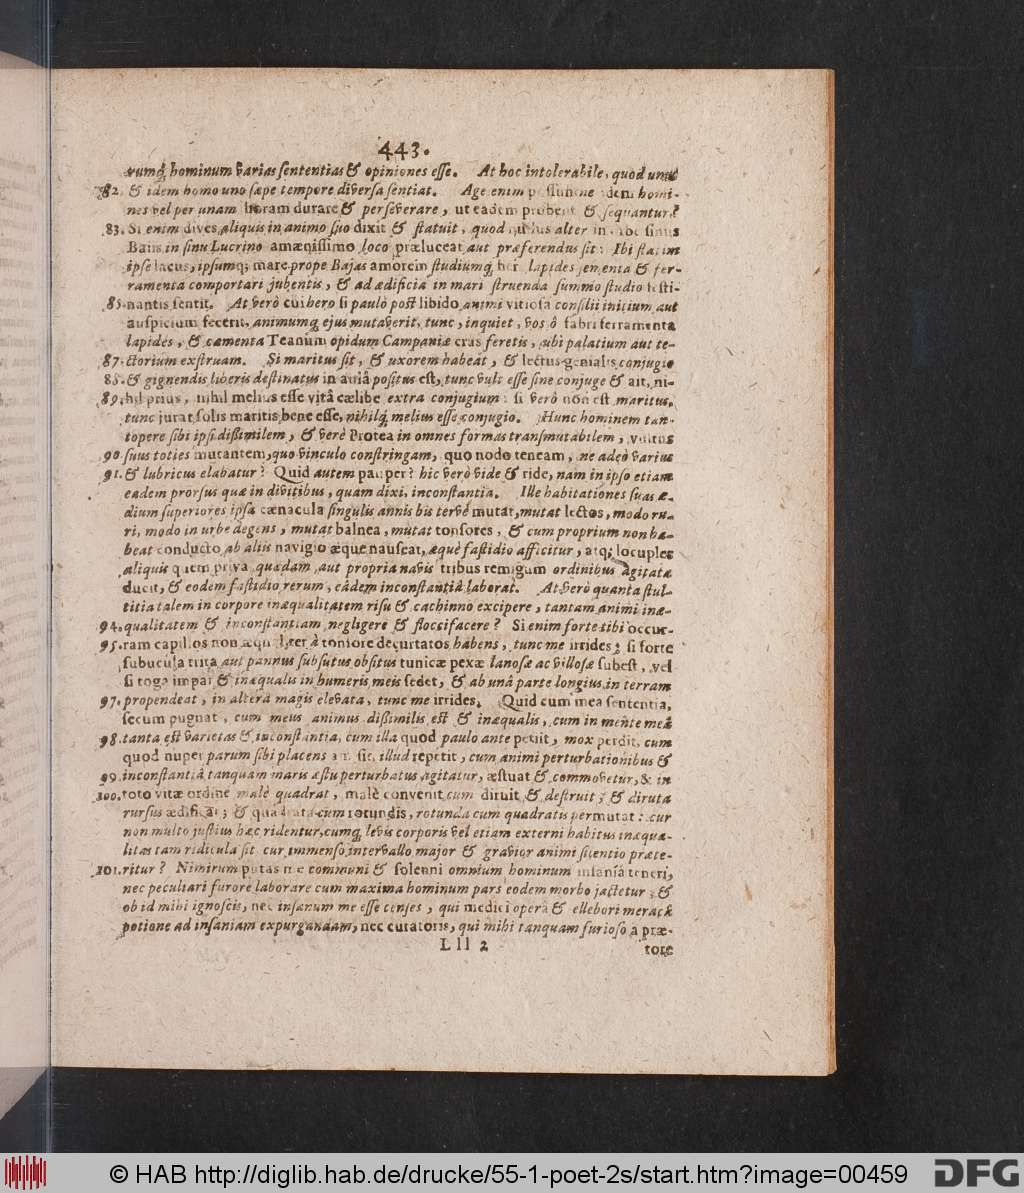 443.
rumq; hominum varias sententias & opiniones esse. At hoc intolerabile, quod unus
82. & idem homo uno sæpe tempore diversa sentiat. Age enim possuntne idem homi-
nes vel per unam horam durare & perseverare, ut eadem probent & sequantur?
83. Si enim dives aliquis in animo suo dixit & statuit, quod nullus alter in orbe sinus
Baiis in sinu Lucrino amænissimo loco præluceat aut præferendus sit: Ibi statim
ipse lacus, ipsumq; mare prope Bajas amorem studiumq; heri lapides jementa & fer-
ramenta comportari jubentis, & ad ædificia in mari struenda summo studio festi-
85. nantis sentit. At verò cui hero si paulò post libido animi vitiosa consilii initium aut
auspicium fecerit, animumq; ejus mutaverit, tunc, inquiet, vos ô fabri ferramenta
lapides, & cæmenta Teanum opidum Campaniæ cras feretis, ubi palatium aut te-
87. ctorium exstruam. Si maritus sit, & uxorem habeat, & lectus genialis conjugio
88. & gignendis liberis destinatus in aulâ positus est, tunc vult esse sine conjuge & ait, ni-
89. hil prius, nihil melius esse vitâ cælibe extra conjugium: si verò non est maritus,
tunc jurat solis maritis bene esse, nihilq; melius esse conjugio. Hunc hominem tan-
topere sibi ipsi dißimilem, & verè Protea in omnes formas transmutabilem, vultus
90. suus toties mutantem, quo vinculo constringam, quo nodo teneam, ne adeò varius
91. & lubricus elabatur? Quid autem pauper? hic verò vide & ride, nam in ipso etiam
eadem prorsus quæ in divitibus, quam dixi, inconstantia. Ille habitationes suas æ-
dium superiores ipsa cænacula singulis annis bis tervè mutat, mutat lectos, modo ru-
ri, modo in urbe degens, mutat balnea, mutat tonsores, & cum proprium non ha-
beat conducto ab aliis navigio æque nauseat, æquè fastidio afficitur, atq; locuples
aliquis quem priva quædam aut propria navis tribus remigum ordinibus agitata
ducit, & eodem fastidio rerum, eâdem inconstantiâ laborat. At verò quanta stul-
titia talem in corpore inæqualitatem risu & cachinno excipere, tantam animi inæ-
94. qualitatem & inconstantiam negligere & floccifacere? Si enim forte tibi occur-
95. ram capillos non æqualiter à tonsore decurtatos habens, tunc me irrides; si forte
subucula trita aut pannus subsutus obsitus tunicæ pexæ lanosæ ac villosæ subest, vel
si toga impar & inæqualis in humeris meis sedet, & ab unâ parte longius in terram
97. propendeat, in alterâ magis elevata, tunc me irrides. Quid cum mea sententia,
secum pugnat, cum meus animus dißimilis est & inæqualis, cum in mente meâ
98. tanta est varietas & inconstantia, cum illa quod paulo ante petiit, mox perdit, cum
quod nuper parum sibi placens sit, illud repetit, cum animi perturbationibus &
99. inconstantiâ tanquam maris æstu perturbatus agitatur, æstuat & commovetur, & in
100. toto vitæ ordine malè quadrat, malè convenit cum diruit & destruit; & diruta
rursus ædificat; & quadrata cum rotundis, rotunda cum quadratis permutat: cur
non multo justius hæc ridentur, cumq; levis corporis vel etiam externi habitus inæqua-
litas tam ridicula sit cur immenso intervallo major & gravior animi silentio præte-
101. ritur? Nimirum putas me communi & solenni omnium hominum insaniâ teneri,
nec peculiari furore laborare cum maxima hominum pars eodem morbo jactetur, &
ob id mihi ignoscis, nec insanum me esse censes, qui medici operâ & ellebori meraci
potione ad insaniam expurgandam, nec curatoris, qui mihi tanquam furioso a præ-
Lll 2
tore
© HAB http://diglib.hab.de/drucke/55-1-poet-2s/start.htm?image=00459
DFG